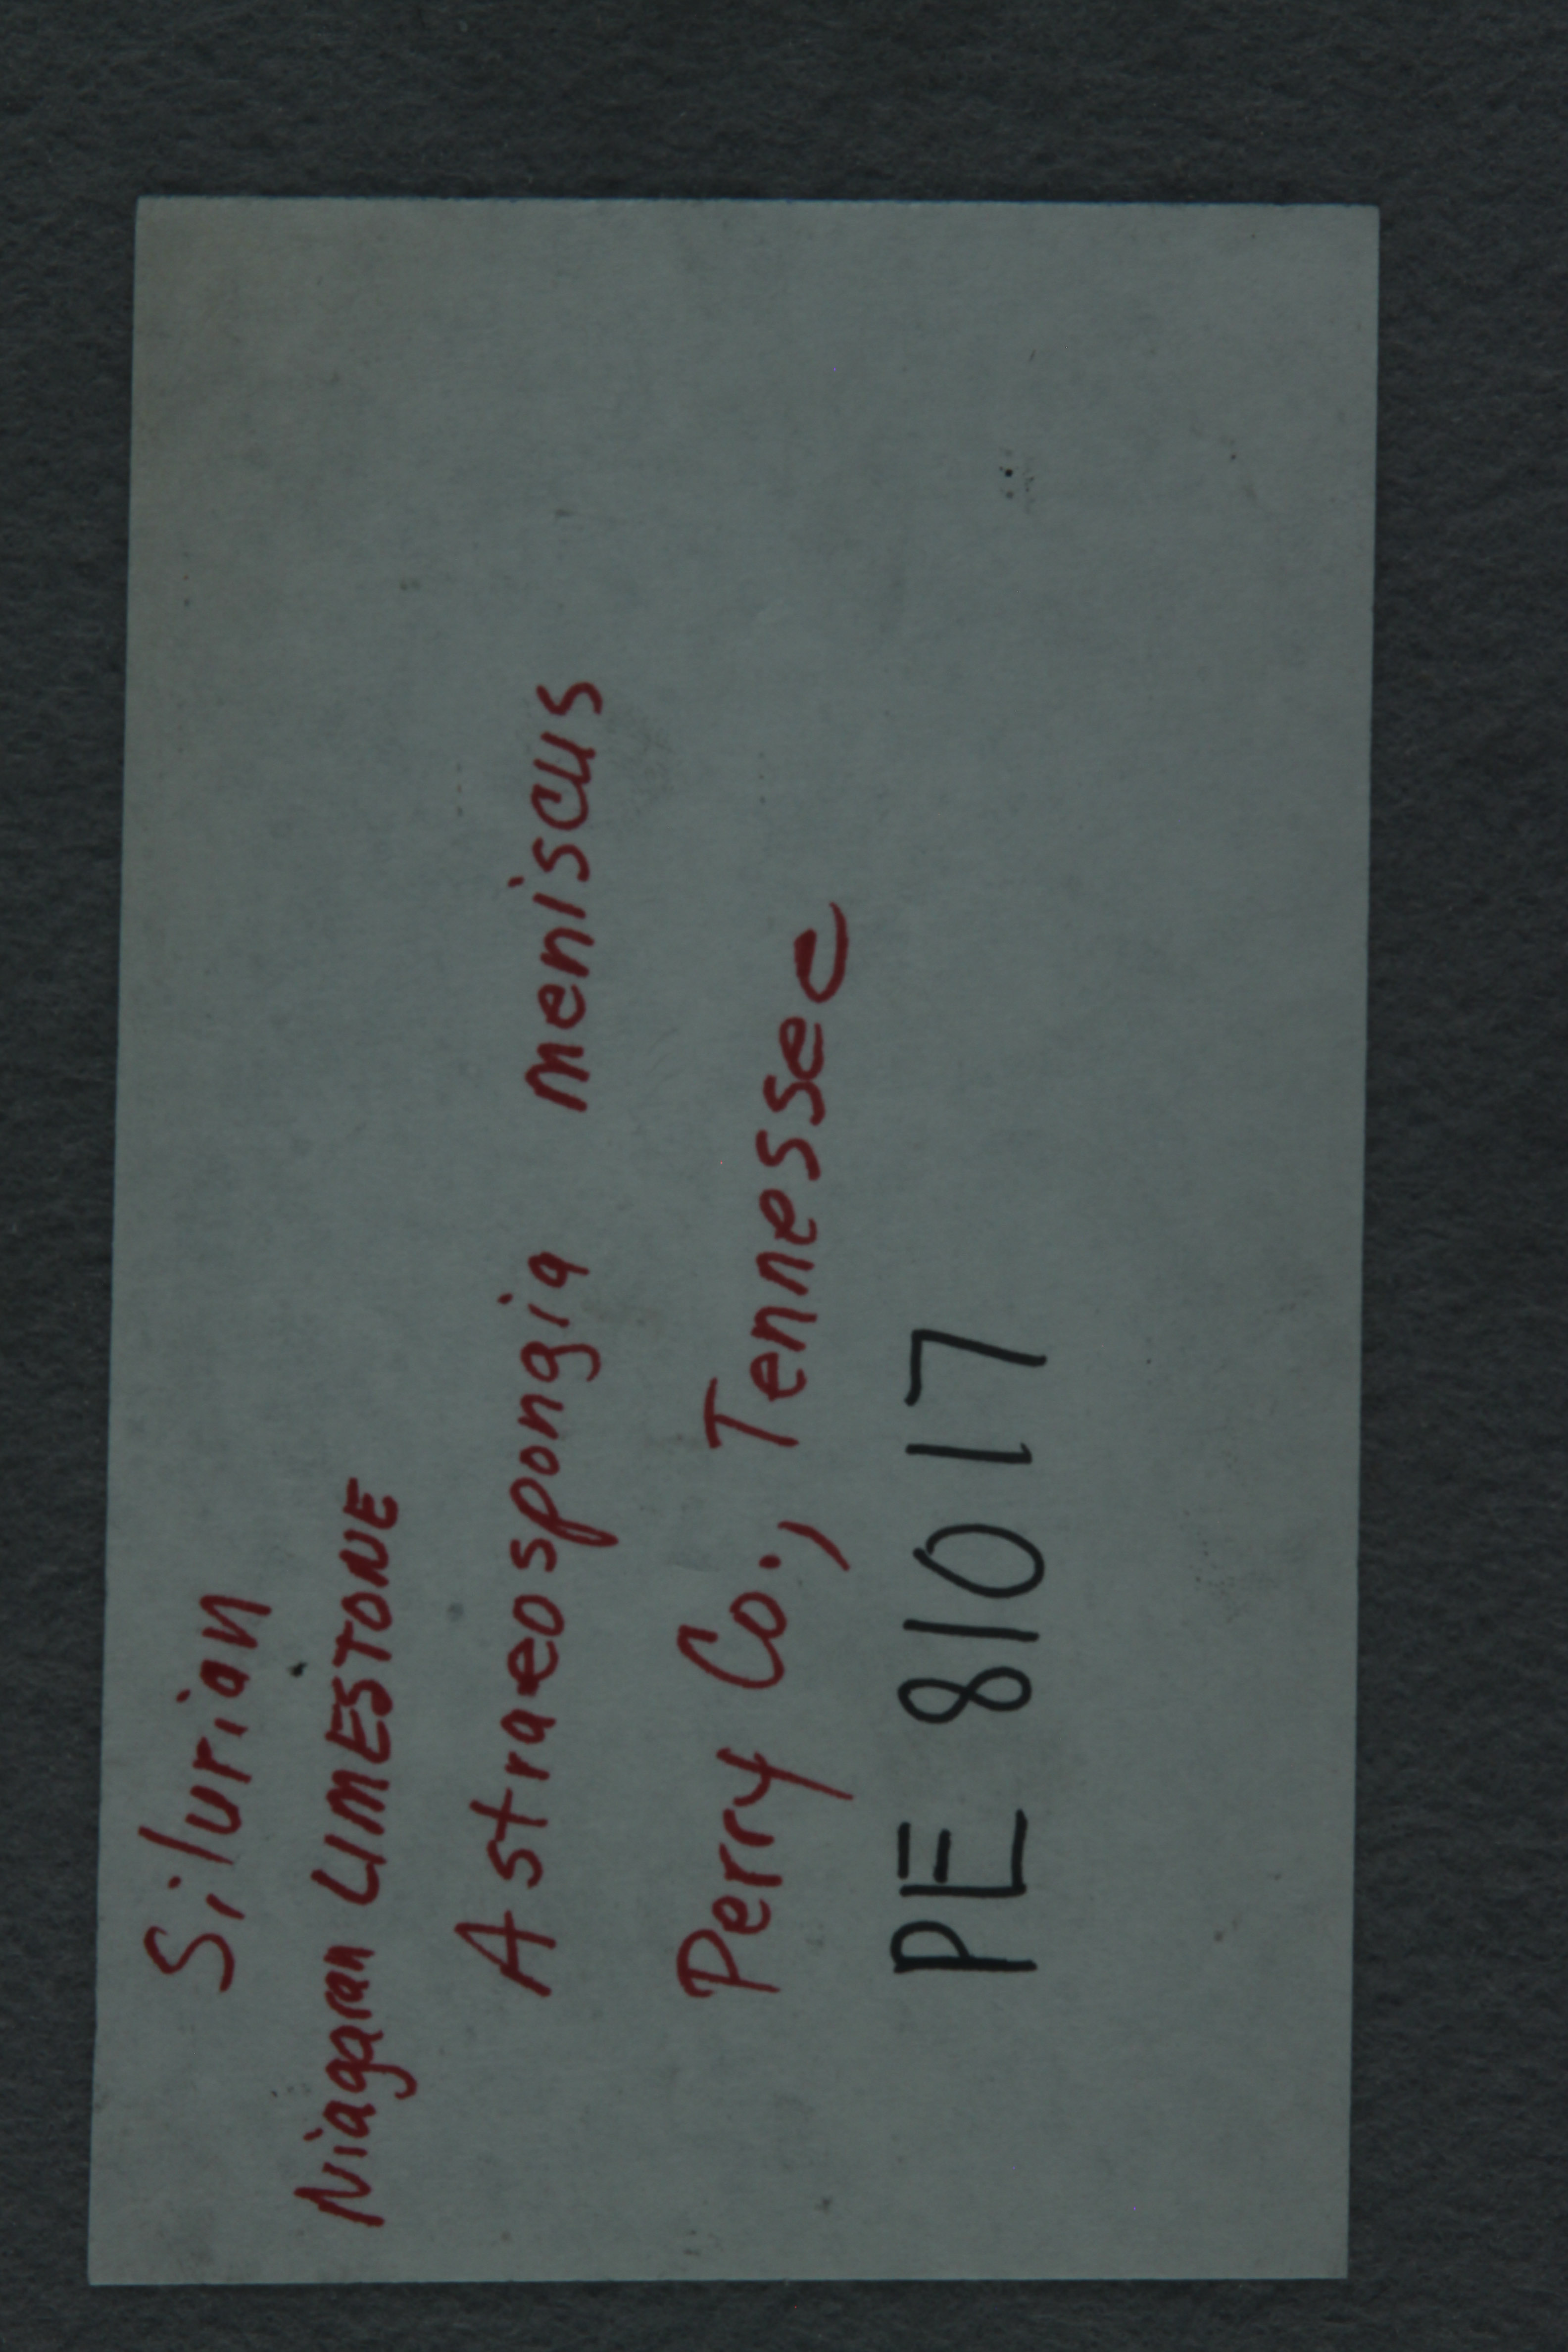 Silurian
Niagaran LIMESTONE
Astraeospongia meniscus
Perry Co., Tennessee
PE 81017